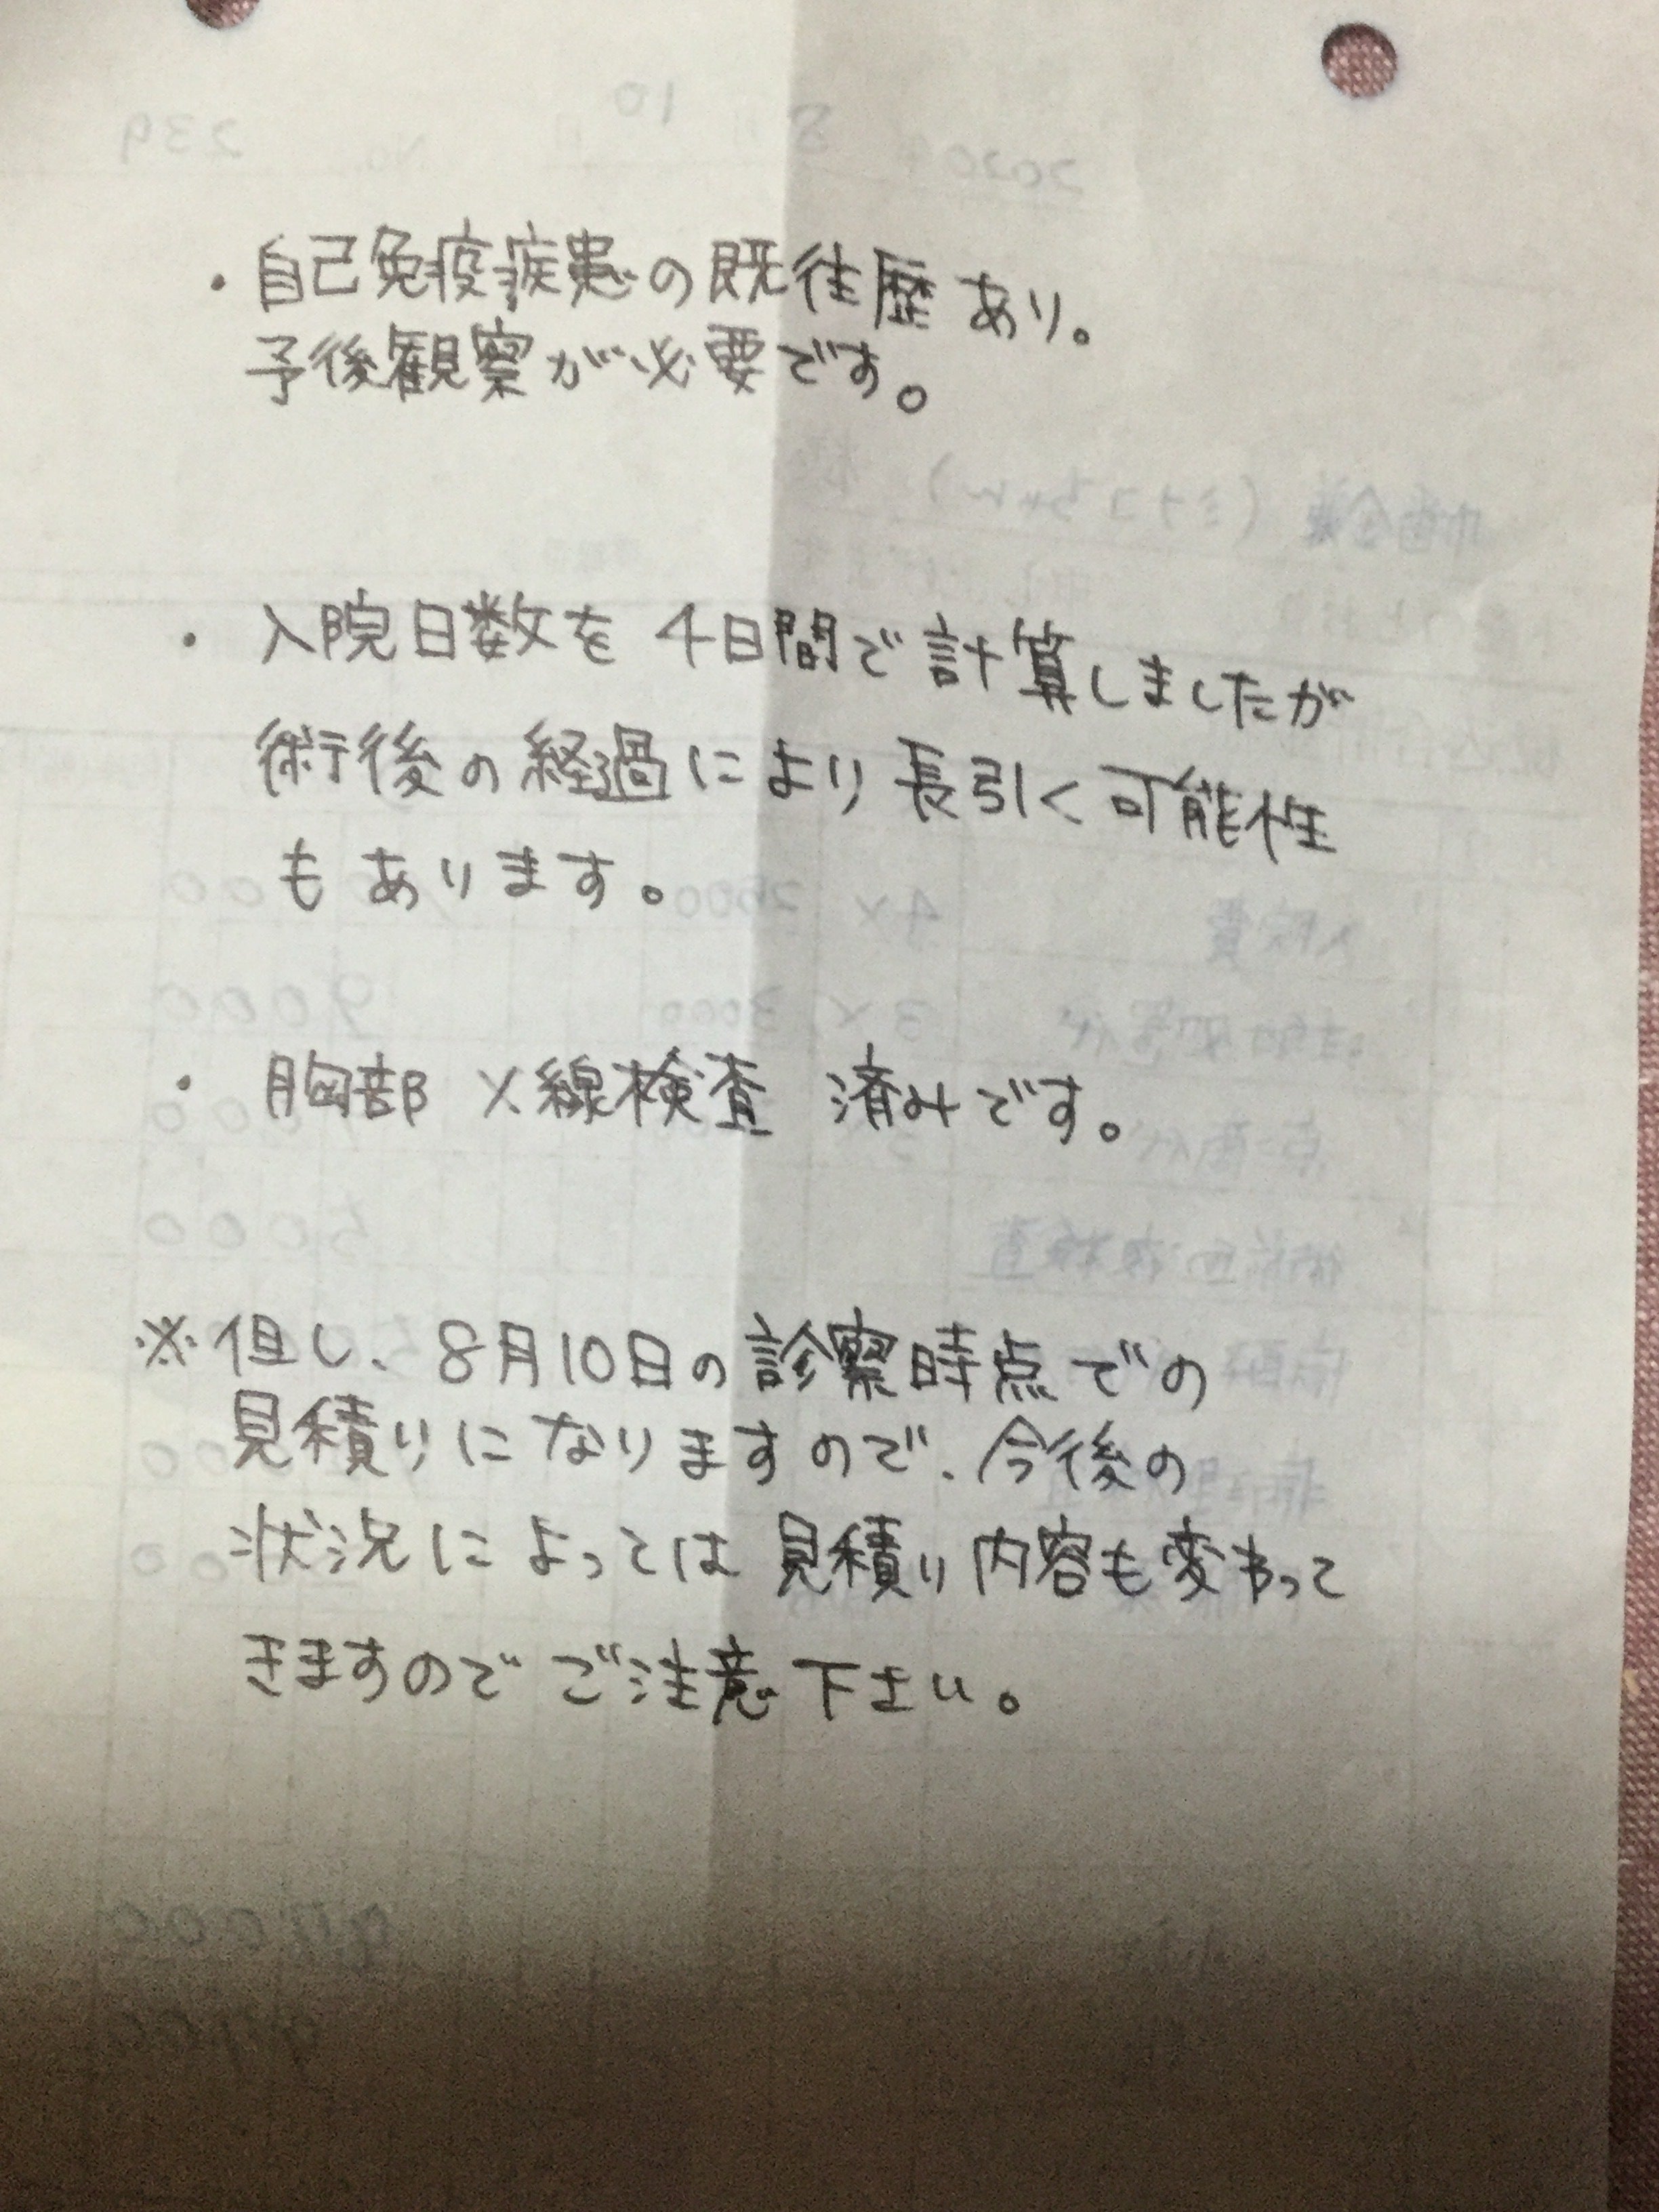 ・自己免疫疾患の既往歴 あり。
予後観察が必要です。
・入院日数を 4日間で計算しましたが
術後の経過により長引く可能性
もあります。
・胸部 X線検査 済みです。
※但し、8月10日の診察時点での
見積りになりますので、今後の
状況によっては見積り内容も変わって
きますのでご注意下さい。